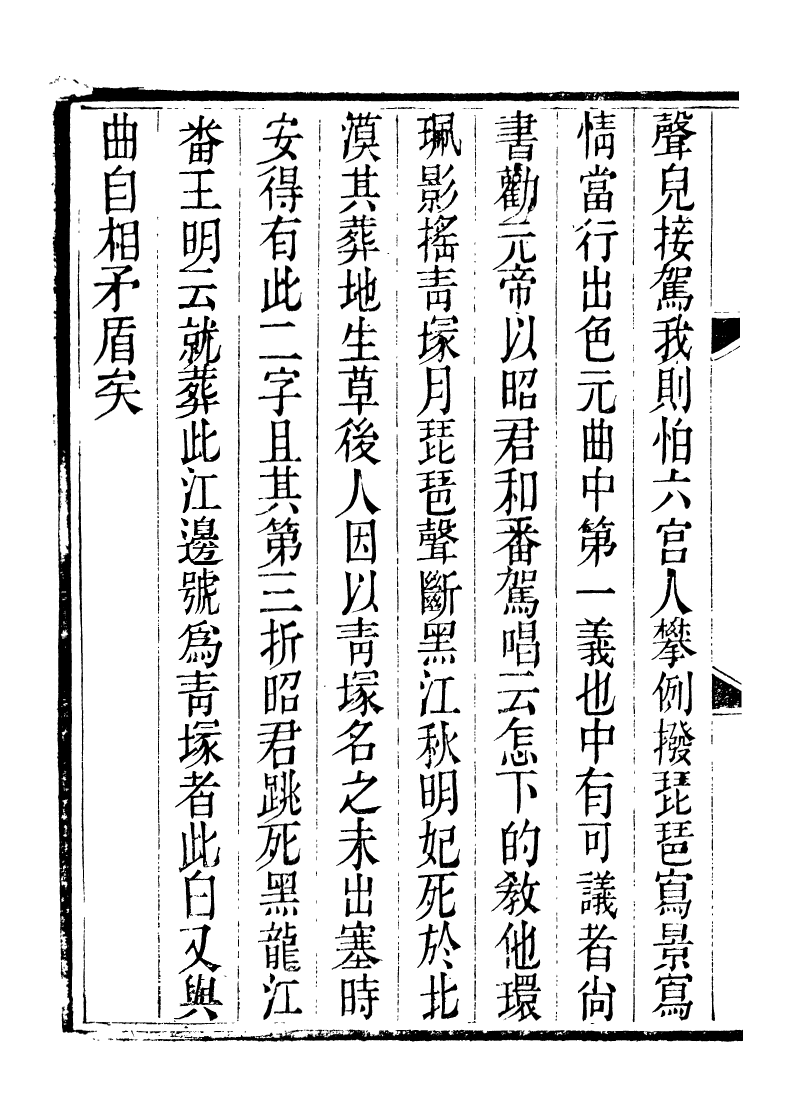 聲兒接駕我則怕六宮人攀例撥琵琶寫景寫
情當行出色元曲中第一義也中有可議者尙
書勸元帝以昭君和番駕唱云怎下的敎他環
珮影搖靑塚月琵琶聲斷黑江秋明妃死於北
漠其葬地生草後人因以靑塚名之未出塞時
安得有此二字且其第三折昭君跳死黑龍江
畨王明云就葬此江邊號爲靑塚者此白又與
曲自相矛盾矣